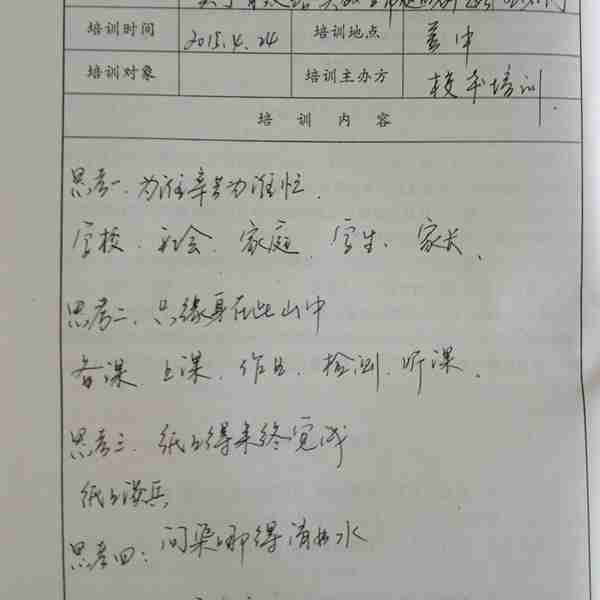 培训时间 2015.4.24 培训地点 蓝中
培训对象 培训主办方 校本培训
培 训 内 容
思考一、为谁辛苦为谁忙.
学校、社会、家庭、学生、家长、
思考二、只缘身在此山中
备课、上课、作业、检测、听课、
思考三、纸上得来终觉浅
纸上谈兵
思考四：问渠哪得清如水